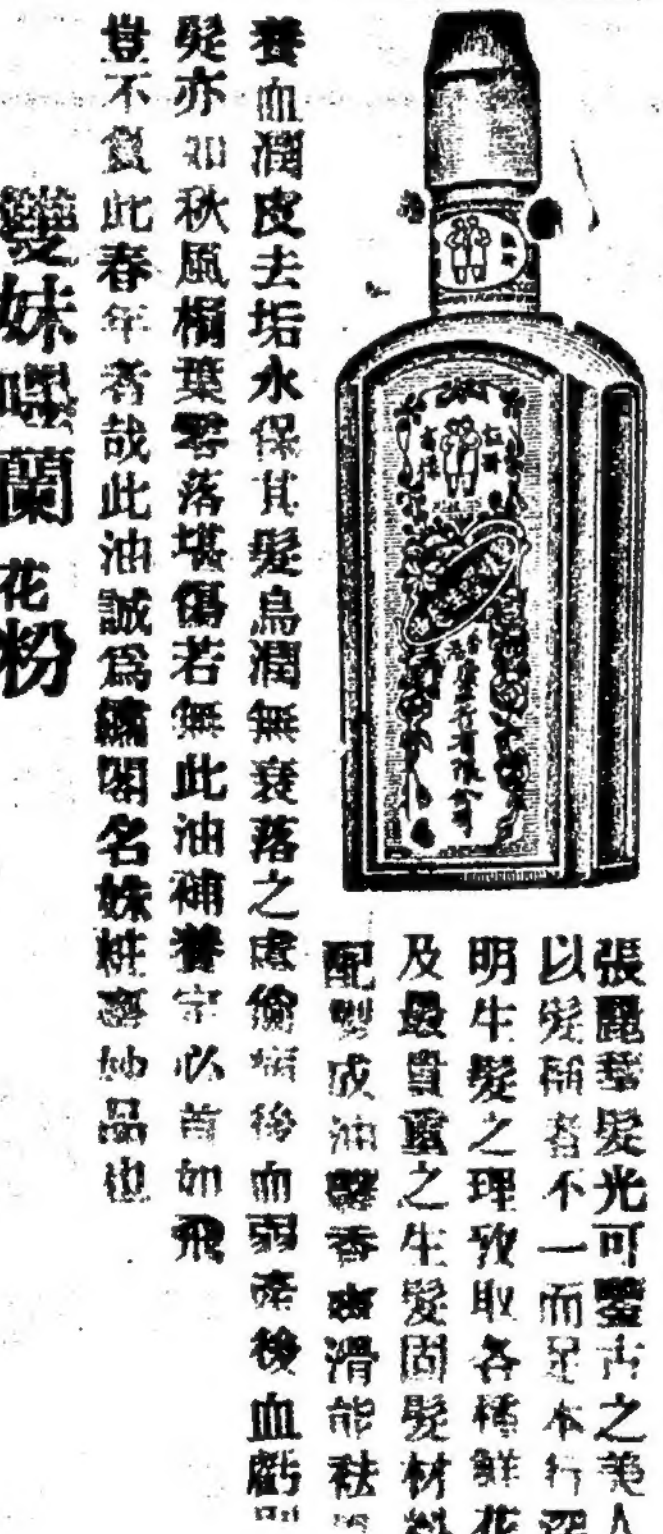 張麗華髮光可鑒古之美人
以髮稱者不一而足本行深
明生髮之理攷取各種鮮花
及最貴重之生髮固髮材料
配製成油馨香幽滑能祛
養血潤皮去垢永保其髮烏潤無衰落之虞倘病後血弱產後血虧則
髮亦如秋風榻葉零落堪傷若無此油補養定必首如飛
豈不負此春年者哉此油誠爲繡閣名姝粧臺妙品也
雙妹嚤蘭花粉
有限公司